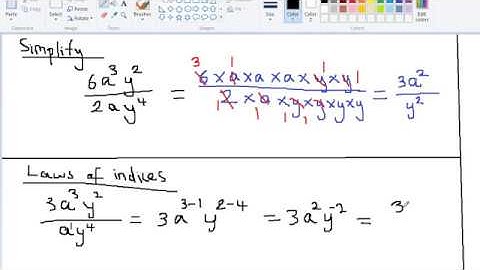 Simplify
6a³y² / 2ay⁴ = 6×a×a×a×y×y / 2×a×y×y×y×y = 3a² / y²
3 1 1 1
1 1 1 1
Laws of indices
3a³y² / a¹y⁴ = 3a³⁻¹y²⁻⁴ = 3a²y⁻² = 3